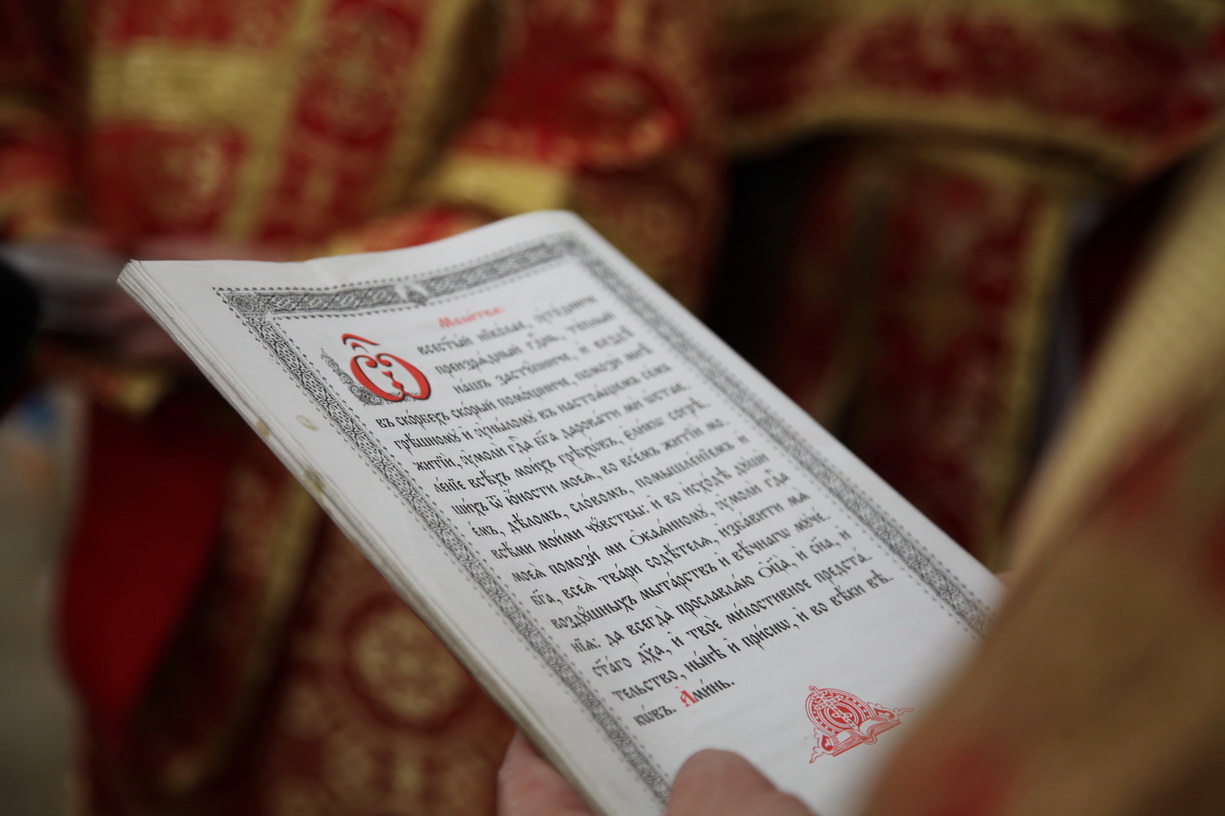 Моли́тва:
Ѽ всест҃ы́й нїко́лае, ᲂу҆го́дниче
преизрѧ́дный гдⷭ҇нь, те́плый
на́шъ засту́пниче, и҆ вездѣ̀
въ ско́рбехъ ско́рый помо́щниче, помозѝ мнѣ̀
грѣ́шномꙋ и҆ ᲂу҆ны́ломꙋ въ настоѧ́щемъ се́мъ
житїѝ, ᲂу҆молѝ гдⷭ҇а бг҃а дарова́ти мѝ ѡ҆ставле́нїе
ле́нїе всѣ́хъ мои́хъ грѣхѡ́въ, є҆ли́кѡ согрѣ-
ши́хъ ѿ ю҆́ности моеѧ̀, во всѐмъ житїѝ мо-
е́мъ, дѣ́ломъ, сло́вомъ, помышле́нїемъ и҆
всѣ́ми мои́ми чꙋ̑вствы: и҆ во и҆схо́дѣ дꙋшѝ
моеѧ̀ помозѝ мѝ ѻ҆каѧ́нномꙋ, ᲂу҆молѝ гдⷭ҇а
бг҃а, всеѧ̀ тва́ри содѣ́телѧ, и҆зба́вити мѧ̀
воздꙋ́шныхъ мыта́рствъ и҆ вѣ́чнагѡ мꙋче́-
нїѧ: да всегда̀ прославлѧ́ю ѻ҆ц҃а̀, и҆ сн҃а, и҆
ст҃а́го дх҃а, и҆ твоѐ ми́лостивное предста́-
тельство, ны́нѣ и҆ при́снѡ, и҆ во вѣ́ки вѣ-
кѡ́въ. А҆ми́нь.